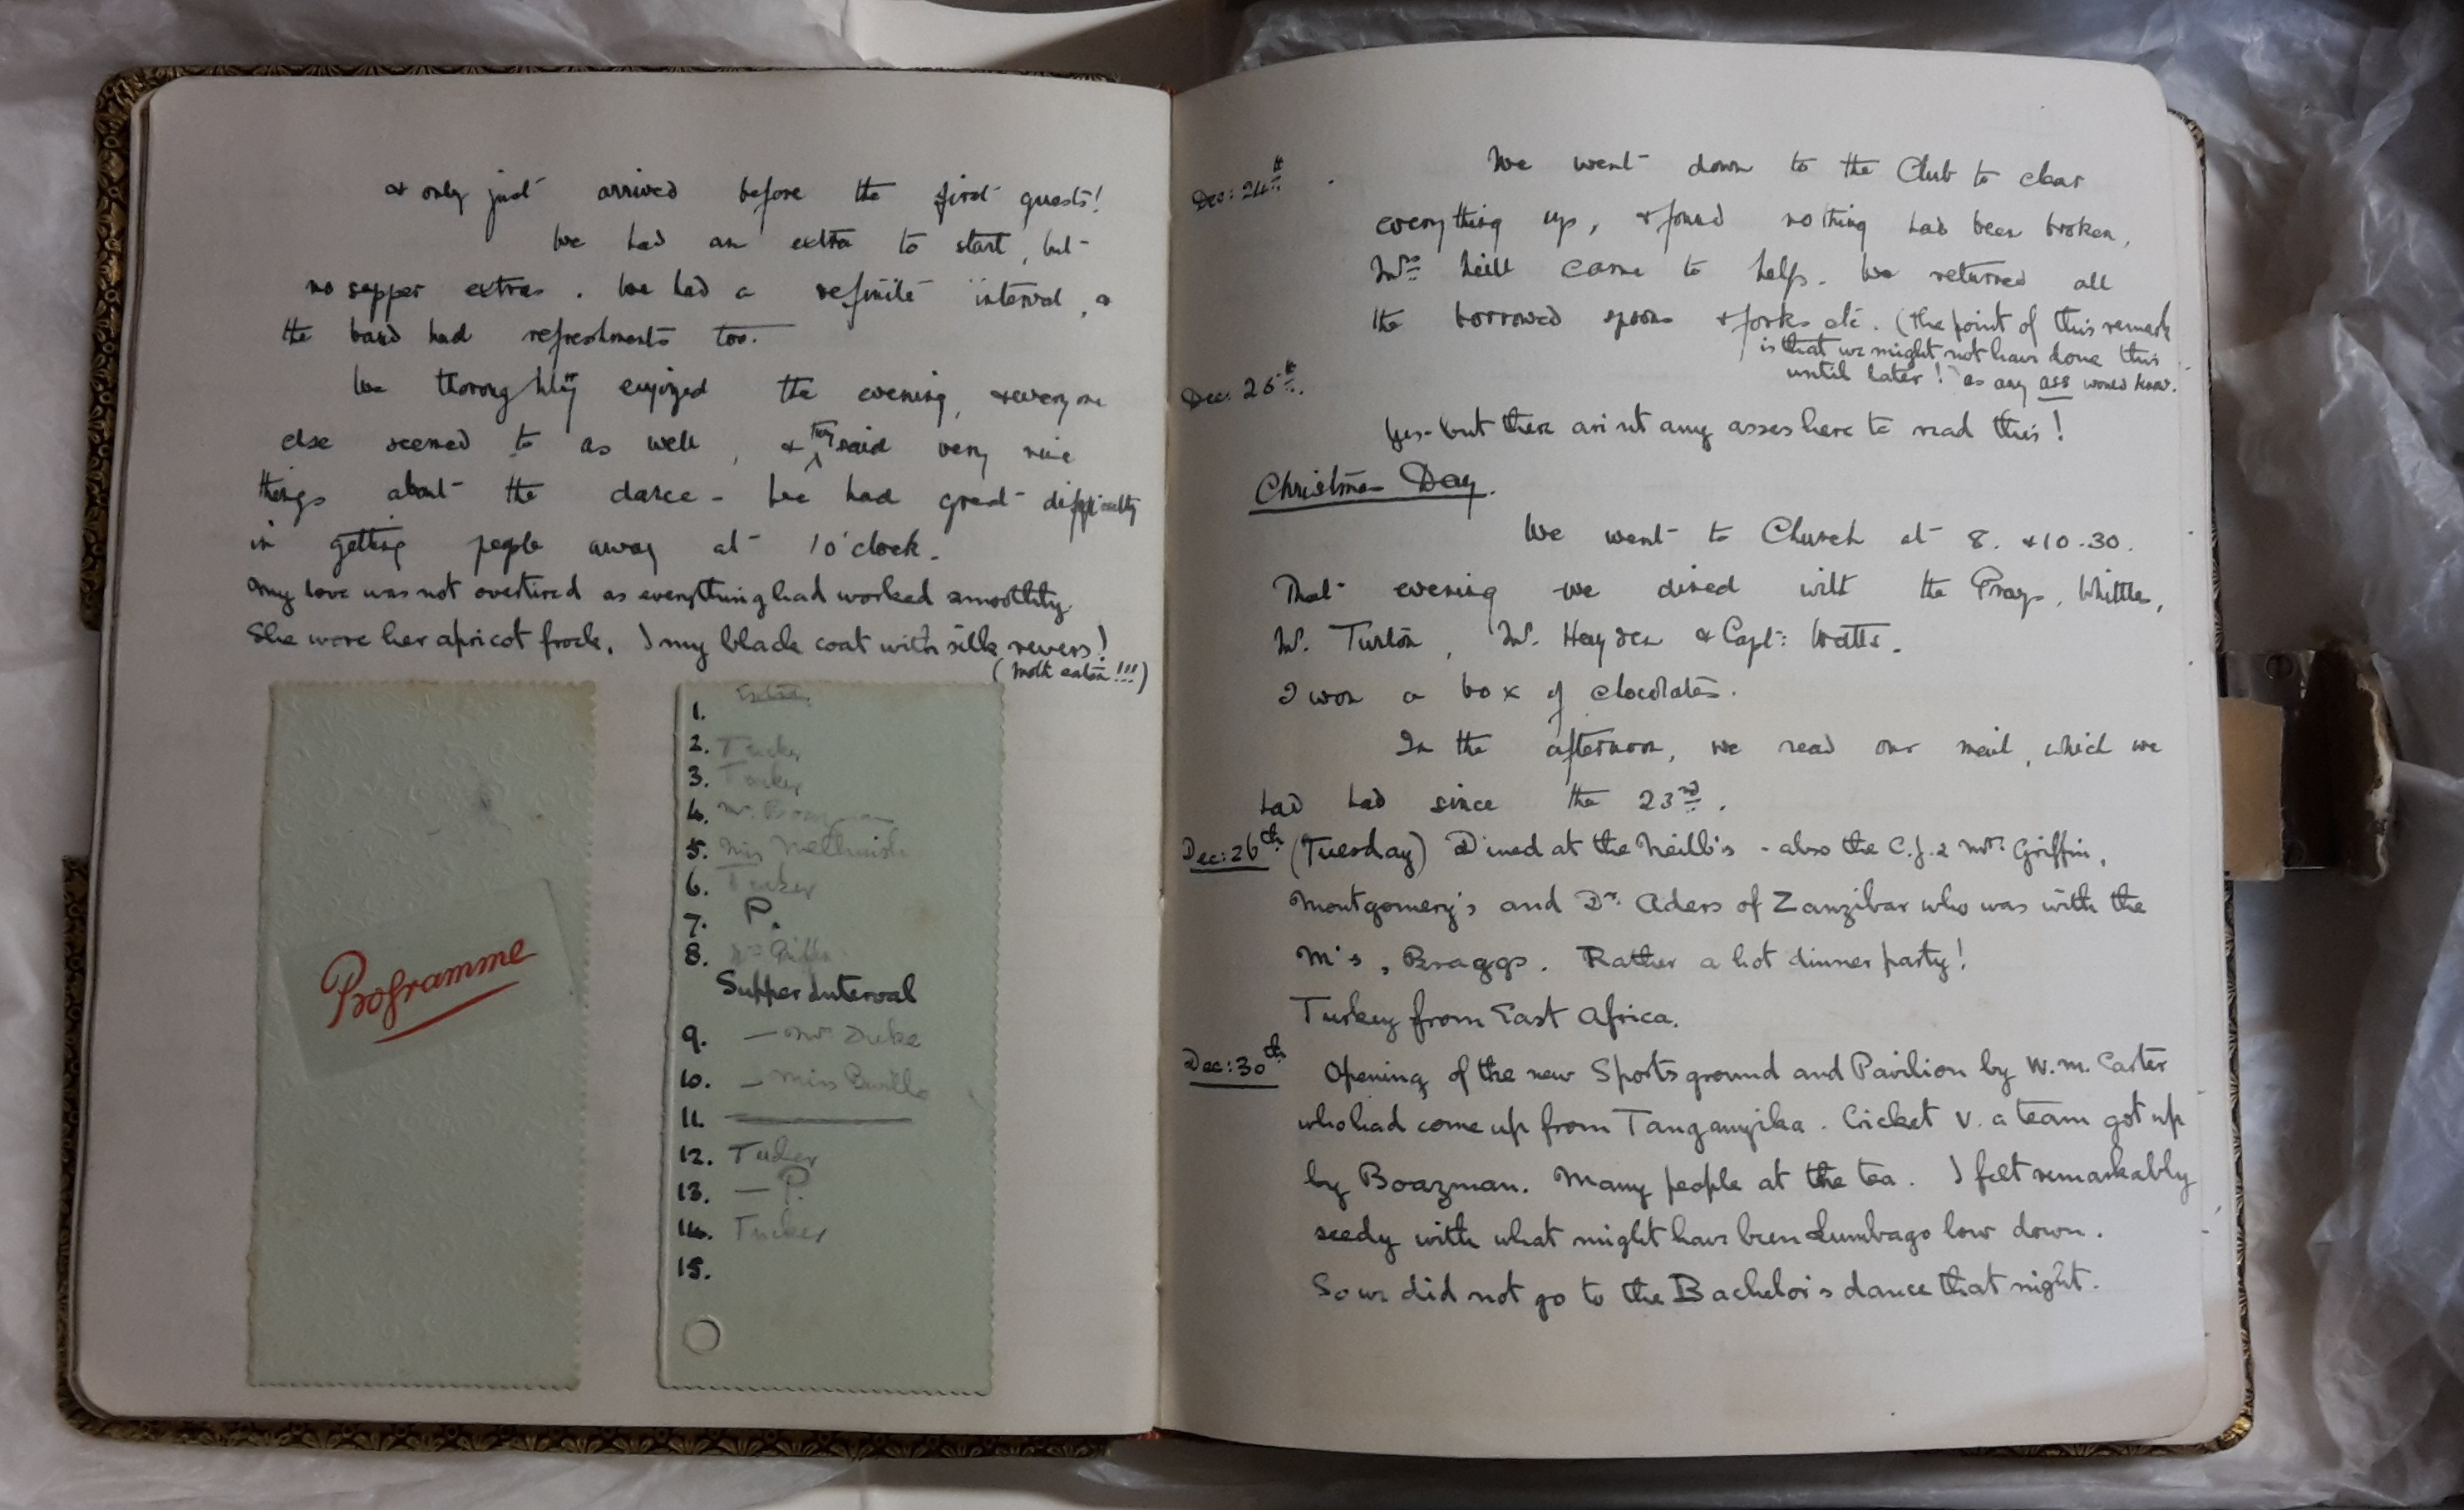 & only just arrived before the first guests!
We had an extra to start, but
no supper extras. We had a definite interval, &
the band had refreshments too.
We thoroughly enjoyed the evening, & everyone
else seemed to as well, & they said very nice
things about the dance - We had great difficulty
in getting people away at 1 o'clock.
My love was not overtired as everything had worked smoothly.
She wore her apricot frock, I my black coat with silk revers!
(Moth eaten!!!)
Programme
Extra
1.
2. Tucker
3. Tucker
4. Mr. Boazman
5. Miss
6. Tucker
7. P.
8.
Supper Interval
9. — Mr Duke
10. — Miss
11. ———
12. Tucker
13. — P.
14. Tucker
15.
Dec: 24th. We went down to the Club to clear
everything up, & found nothing had been broken,
Mrs Neill came to help. We returned all
the borrowed spoons & forks etc. (the point of this remark
is that we might not have done this
until later! as any ass would know.
Dec. 25th.
Yes - but there are'nt any asses here to read this!
Christmas Day.
We went to Church at 8. & 10.30.
That evening we dined with the Prays, Whittle,
Mr. Turton, Mr. Hayden & Capt: Watts.
I won a box of chocolates.
In the afternoon, we read our mail, which we
had had since the 23rd.
Dec: 26th (Tuesday) Dined at the Neill's - also the C.J. & Mrs. Griffin,
Montgomery's and Dr. Aders of Zanzibar who was with the
M's, Braggs. Rather a hot dinner party!
Turkey from East Africa.
Dec: 30th Opening of the new Sports ground and Pavilion by W.M. Carter
who had come up from Tanganyika. Cricket v. a team got up
by Boazman. Many people at the tea. I felt remarkably
seedy with what might have been Lumbago low down.
So we did not go to the Bachelor's dance that night.